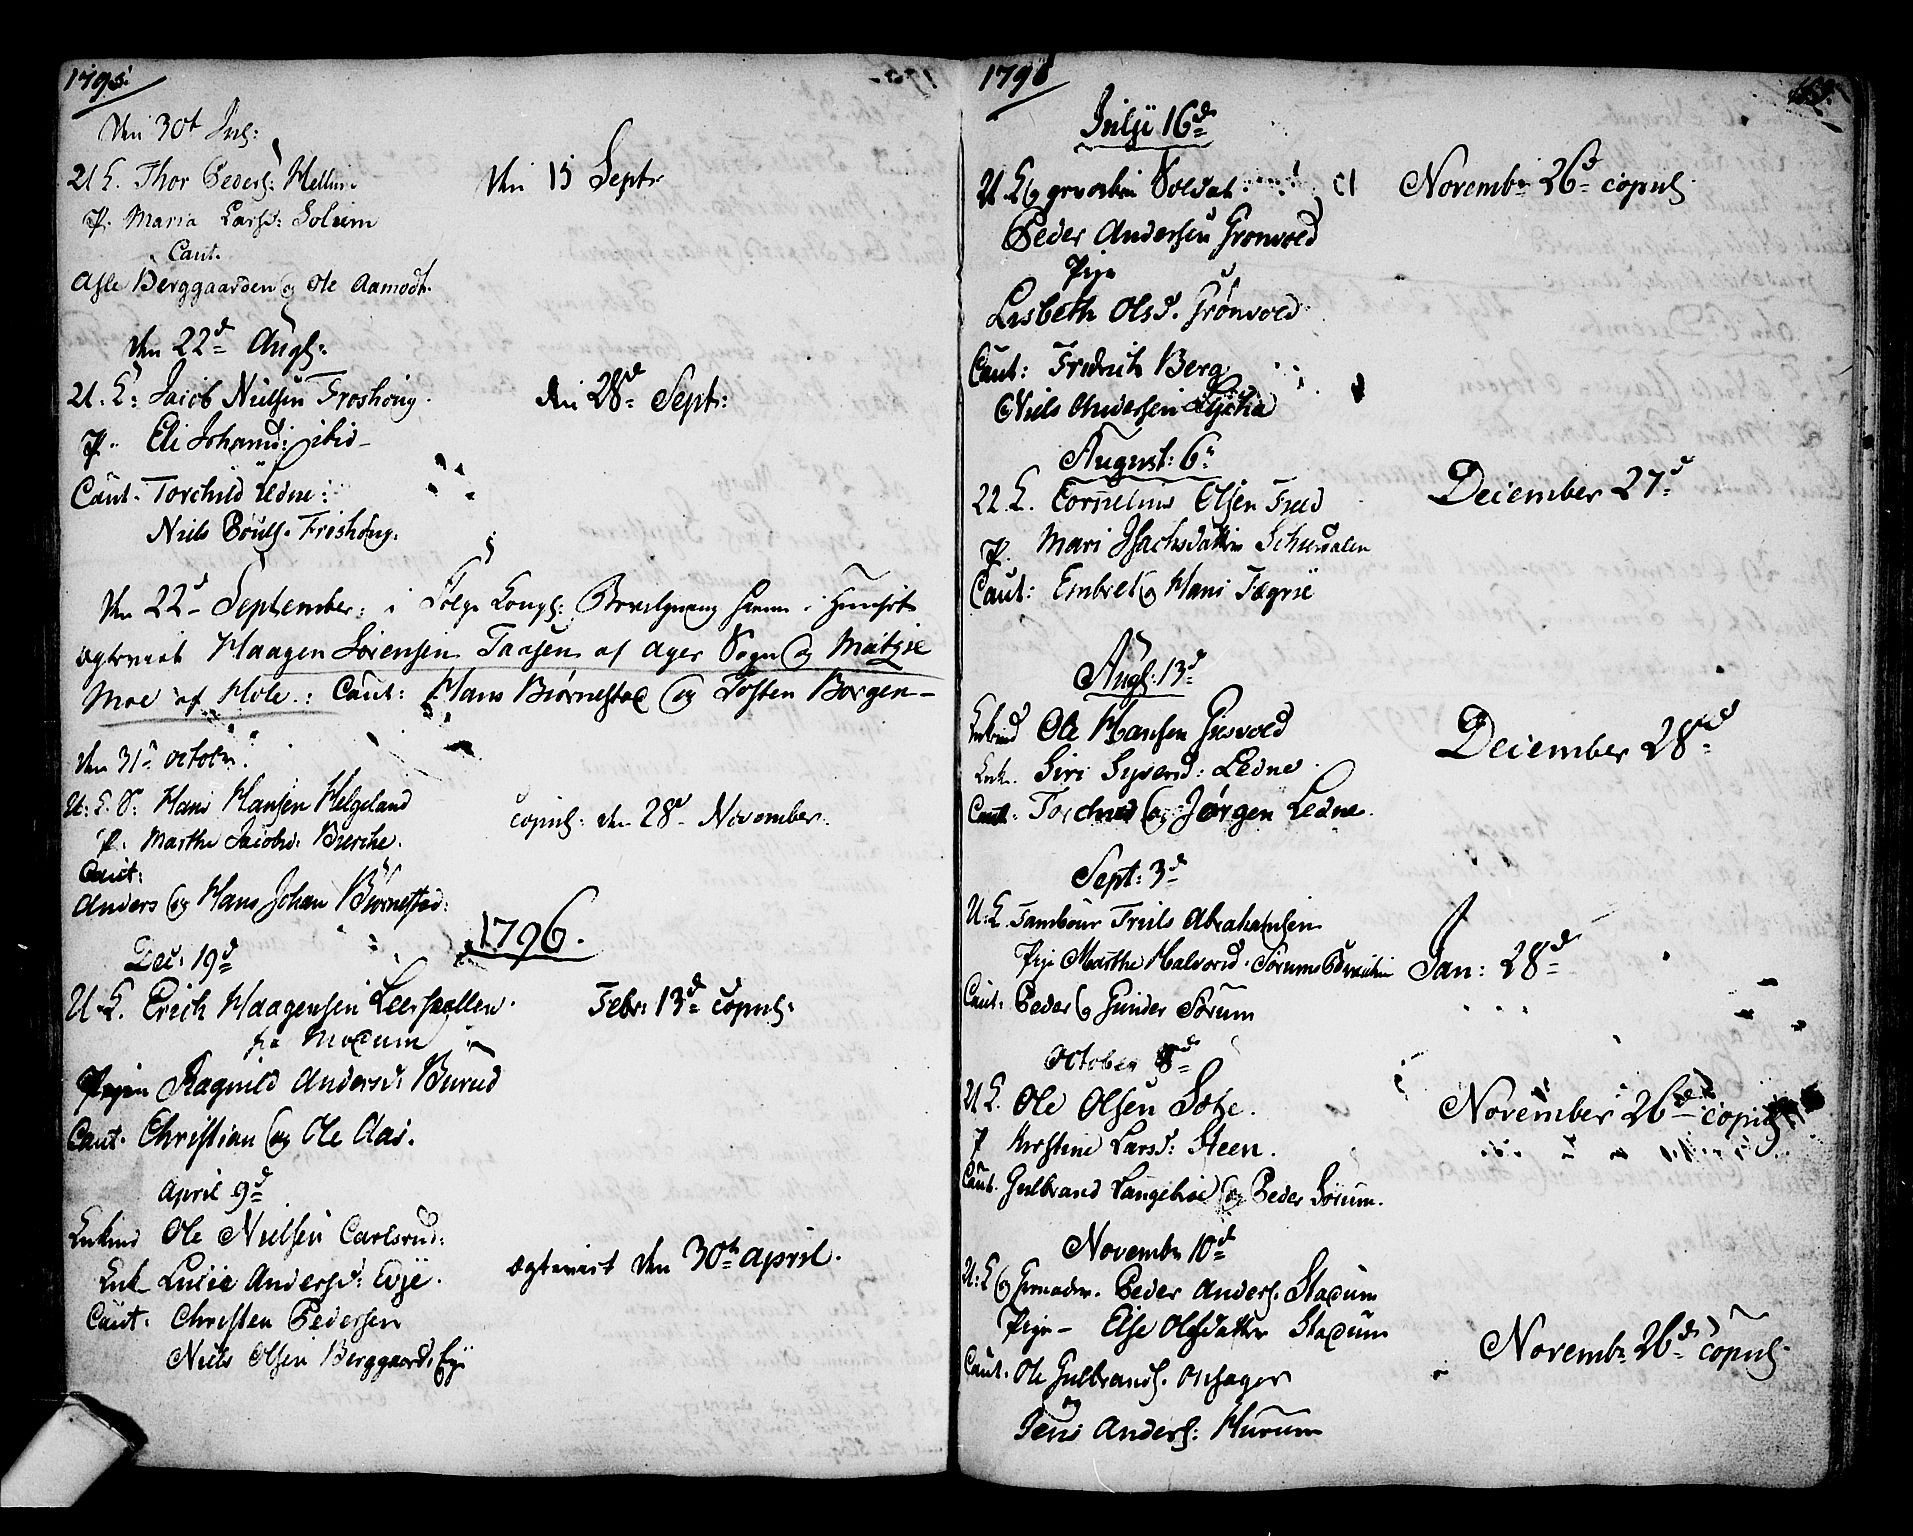 1795
Den 30t Jul:
U K. Thor Peders: Mellin.
P. Maria Larsd: Solum
Caut.
Asle Berggaarden og Ole Aamodt.
Den 15 Septr
Den 22d Augs:
U. K: Jacob Nielsen Froshoug.
P. Eli Johansd: ibid
Caut. Torchild Ledne:
Niels Pouls. Froshoug.
den 28d Septr:
Den 22d September: i Følge Kongl: Bevilgning hiemme i Huuset
ægteviet Haagen Sørensen Taasen af Ager Sogn og Matzie
Moe af Hole.: Caut: Hans Biørnestad og Tosten Borgen
Den 31t octobr:
U: K. S: Hans Hansen Helgeland
P. Marthe Jacobsd. Bierche.
Caut:
Anders og Hans Johan Biørnestad:
copul: den 28d November.
1796.
Dec: 19d
U K. Erich Haagensen Leerskallen
fra Modum
Pigen Ragnild Andersd: Burud
Caut. Christian og Ole Aas.
Febr: 13d copul:
April 9d
Enkemd Ole Nielsen Carlsrud:
Enk. Lucie Andersd: Evje.
Caut. Christen Pedersen
Niels Olsen Berggaard. Eye
ægteviet den 30te april.
1796
169.
Julji 16d
U K og gevorben Soldat
Peder Andersen Grønvold
Pige
Lisbeth Olsd. Grønvold
Caut: Fredrich Berg
Niels Andersen
Novembr 26d copul:
August: 6t
U. K. Cornelius Olsen
P. Mari Isachsdatter
Caut: Embret og Hans Fægrie
December 27d
Augs: 13d
Enkemd Ole Hansen Giesvold
Enk. Siri Syversd: Ledne.
Caut. Torchild og Jørgen Ledne.
December 28d
Sept: 3d
U: K. Tambour Truls Abrahamsen
Pige Marthe Halvorsd. Sørums
Caut: Peder og Gunder Sørum
Jan: 28d
October 8d
U K. Ole Olsen Sotze.
P Kirstine Larsd: Steen.
Caut. Gulbrand Langebroe og Peder Sørum.
November 26de copul:
Novembr 10d
U: K og Grenader. Peder Anders. Stadum
Pige Else Olsdatter Stadum
Caut. Ole Gulbrands. Onsager
og
Jens Anders: Hurum
Novembr 26d copul: